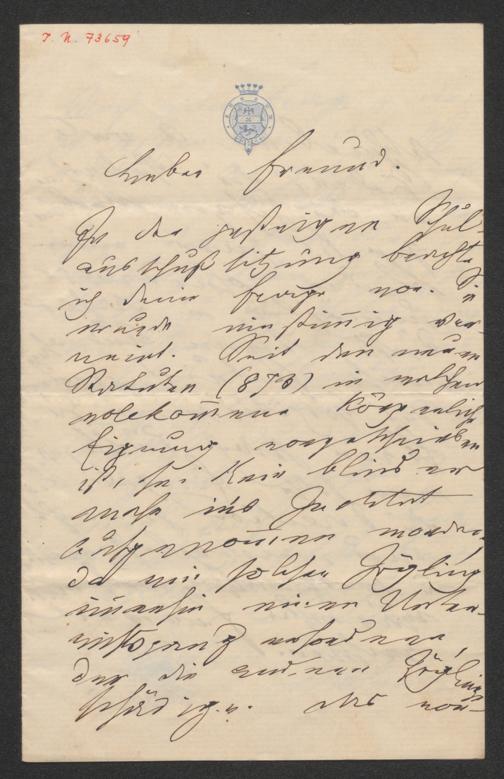 I. N. 73659
Lieber Freund.
In der gestrigen Schul-
ausschuß sitzung brachte
ich deine Frage vor. Sie
wurde einstimmig ver-
neint. Seit den neuen
Statuten (1873) in welchen
vollkommene körperliche
Eignung vorgeschrieben
ist, sei kein blinder
mehr ins Institut
aufgenommen worden,
da ein solcher Zögling
immerhin einen Unter-
richtsgang erfordere,
der die anderen Zöglinge
schädige.